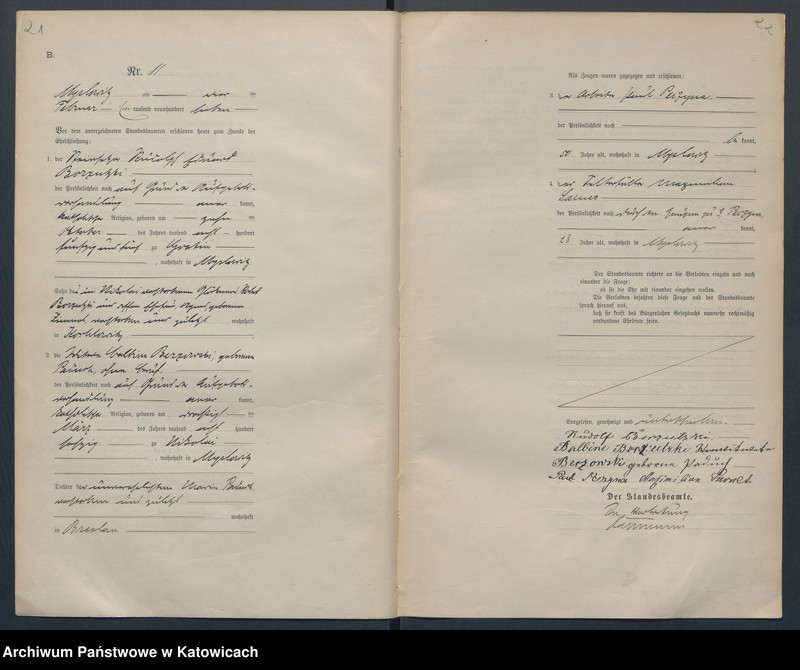 21
B.
Nr. 11
Myslowitz am vier ten
Februar tausend neunhundert sieben
Vor dem unterzeichneten Standesbeamten erschienen heute zum Zwecke der
Eheschließung:
1. der Rudolf Eduard
Borzutzki
der Persönlichkeit nach auf Grund der Aufgebots-
verhandlung aner kannt,
katholischer Religion, geboren am zehn ten
Oktober des Jahres tausend acht hundert
fünfzig und fünf zu
, wohnhaft in Myslowitz
Sohn des in Nikolai verstorbenen
Borzutzki und dessen Ehefrau, geborenen
verstorben und zuletzt wohnhaft
in
2. die Witwe Balbine Berzowski, geborene
Paduch, ohne Beruf
der Persönlichkeit nach auf Grund der Aufgebots-
verhandlung aner kannt,
katholischer Religion, geboren am ten
März des Jahres tausend acht hundert
sechzig zu Nikolai
, wohnhaft in Myslowitz
Tochter der unverehelichten Maria Paduch
verstorben und zuletzt
wohnhaft
in Breslau
22
Als Zeugen waren zugezogen und erschienen:
3. der Arbeiter Paul
der Persönlichkeit nach
be kannt,
50 Jahre alt, wohnhaft in Myslowitz
4. der Maximilian
der Persönlichkeit nach durch den Zeugen zu 3
aner kannt,
23 Jahre alt, wohnhaft in Myslowitz
Der Standesbeamte richtete an die Verlobten einzeln und nach
einander die Frage:
ob sie die Ehe mit einander eingehen wollen.
Die Verlobten bejahten diese Frage und der Standesbeamte
sprach hierauf aus,
daß sie kraft des Bürgerlichen Gesetzbuchs nunmehr rechtmäßig
verbundene Eheleute seien.
Vorgelesen, genehmigt und unterschrieben.
Rudolf Borzutzki
Balbine Borzutzki verwitwete
Berzowski geborene Paduch
Paul Maximilian
Der Standesbeamte.
In Vertretung
Archiwum Państwowe w Katowicach